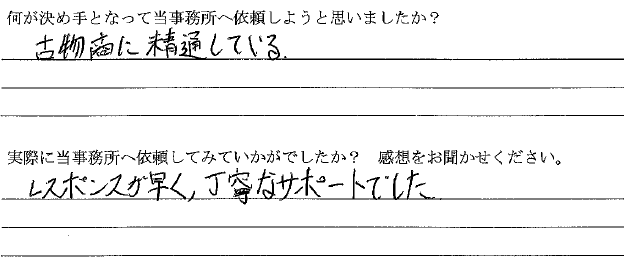 何が決め手となって当事務所へ依頼しようと思いましたか？
古物商に精通している.
実際に当事務所へ依頼してみていかがでしたか？ 感想をお聞かせください。
レスポンスが早く,丁寧なサポートでした